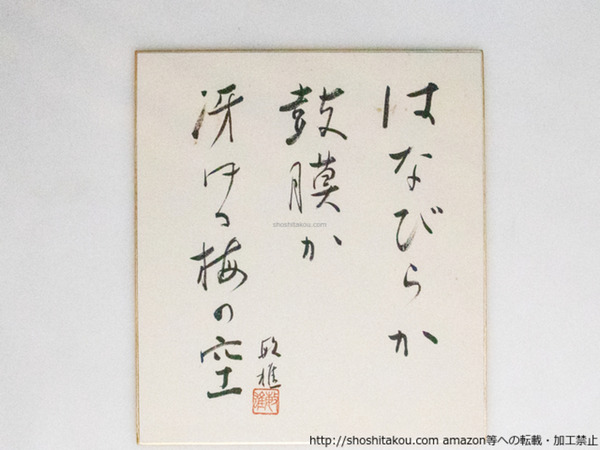 はなびらか
鼓膜か
冴ゆる梅の空
shoshitakou.com
http://shoshitakou.com amazon等への転載・加工禁止